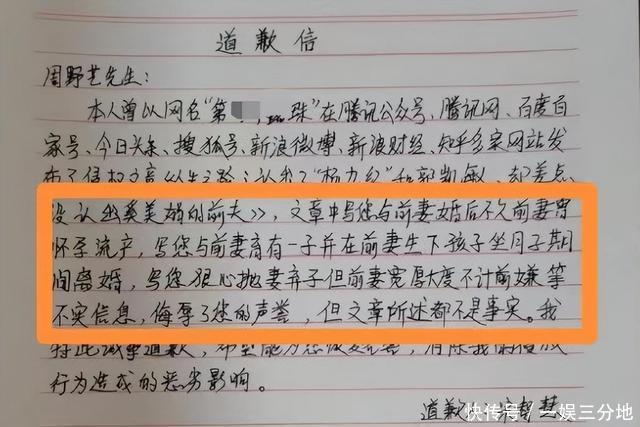 道歉信
周野芒先生:
本人曾以网名“第 珠”在腾讯公众号、腾讯网、百度百
家号、今日头条、搜狐号、新浪微博、新浪财经、知乎多家网站发
和郭凯敏、却差点
没认出奚美娟的前夫>>,文章中写您与前妻婚后不久前妻曾
怀孕流产,写您与前妻育有一子并在前妻生下孩子坐月子期
间离婚,写您狠心抛妻弃子但前妻宽厚大度不计前嫌等
不实信息,侮辱了您的声誉,但文章所述都不是事实。我
特此诚挚道歉,希望能为您恢复名誉,消除我
行为造成的恶劣影响。
道歉 慧
快传号/一娱三分地